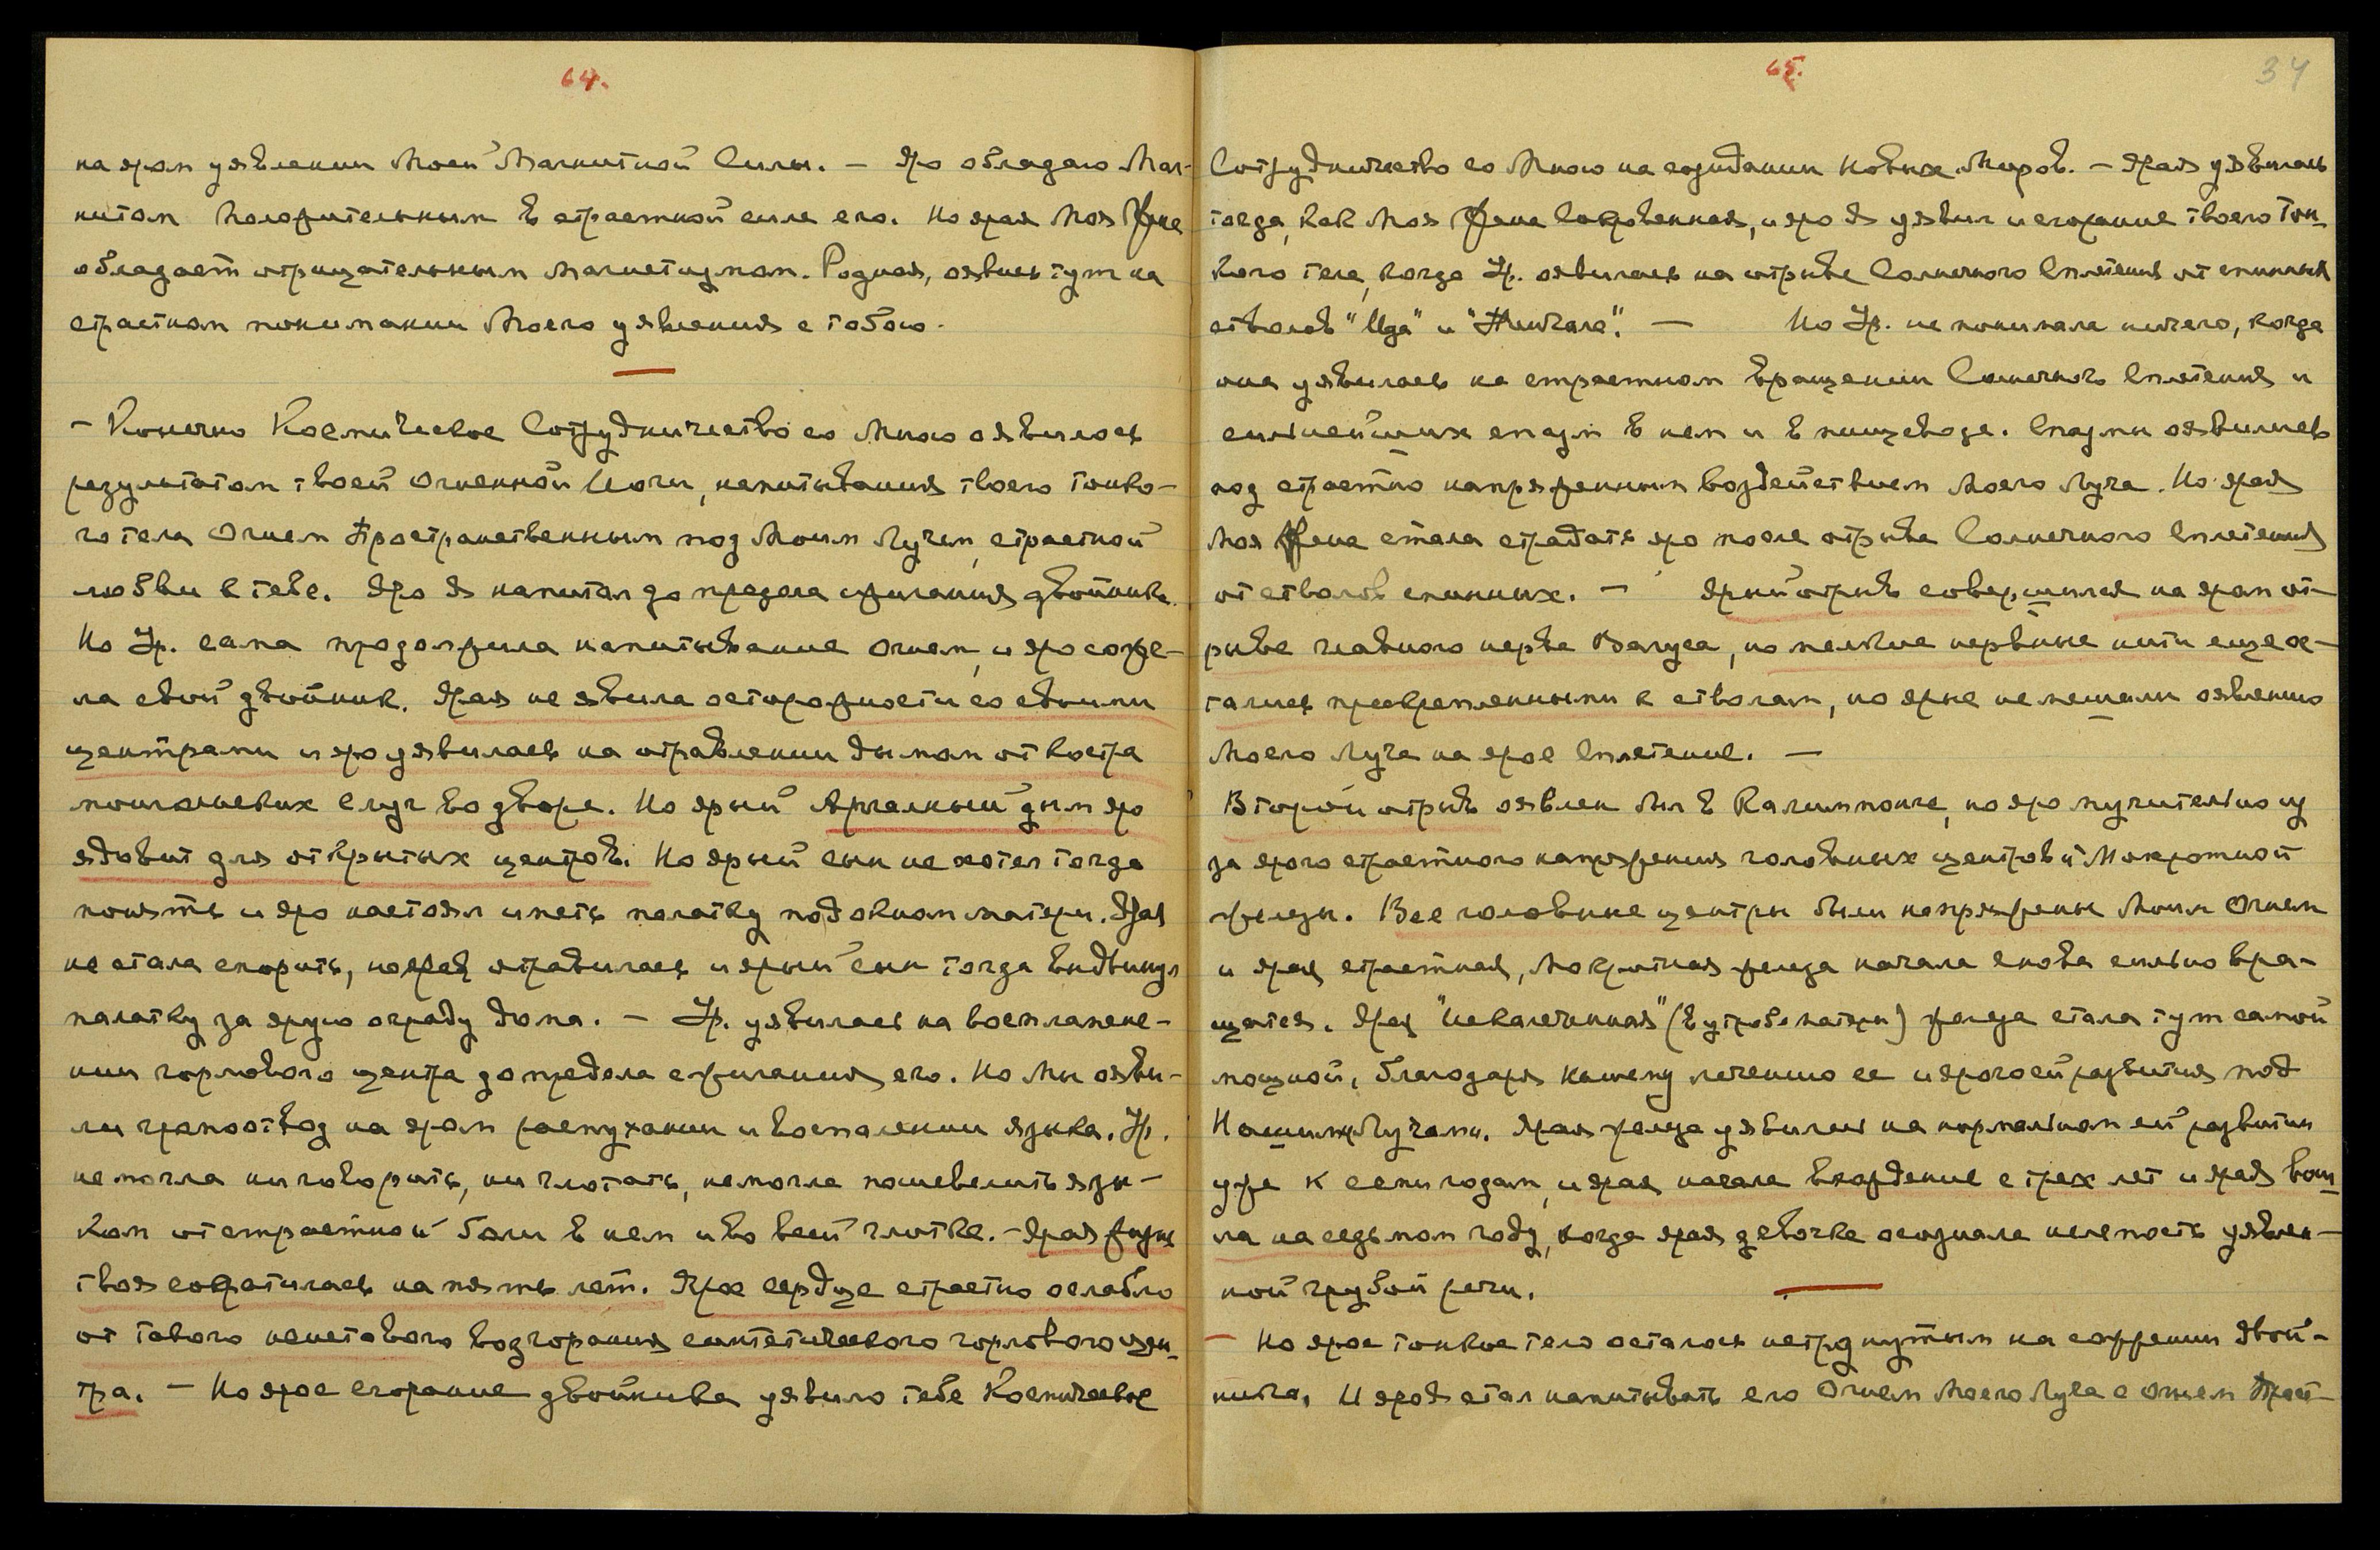 64.
на яром уявлении Моей Магнитной Силы. – Яро обладаю Маг-
нитом Положительным в страстной силе его. Но ярая Моя Жена
обладает отрицательным Магнетизмом. Родная, оявись тут на
страстном понимании Моего уявления с тобою.
– Конечно Космическое Сотрудничество со Мною оявилось
результатом твоей Огненной Йоги, напитывания твоего тонко-
го тела Огнем Пространственным под Моим Лучем, страстной
любви к тебе. Яро Я напитал до предела сжигания двойника.
Но Ур. сама продолжила напитывание Огнем, и яро сожг-
ла свой двойник. Ярая не явила осторожности со своими
центрами и яро уявилась на отравлении дымом от костра
монгольских слуг во дворе. Но ярый Аргальный дым яро
ядовит для открытых центров. Но ярый сын не хотел тогда
понять и яро настоял иметь палатку под окном матери. Ярая
не стала спорить, но ярая отравилась и ярый сын тогда выдвинул
палатку за ярую ограду дома. – Ур. уявилась на воспламене-
нии горлового центра до предела сжигания его. Но Мыояви-
ли громоотвод на яром распухании и воспалении языка. Ур.
не могла ни говорить, ни глотать, не могла пошевелить язы-
ком от страстной боли в нем и во всей глотке. – Ярая жизнь
твоя сократилась на пять лет. Ярое сердце страстно ослабло
от такого неистового возгорания синтетического горлового цен-
тра. – Но ярое сгорание двойника уявило тебе Космическое
65.
34
Сотрудничество со Мною на созидании Новых Миров. – Ярая уявилась
тогда, как Моя Жена Сокровенная, и яро Я уявил и сгорание твоего Тон-
кого тела, когда Ур. оявилась на отрыве Солнечного Сплетения от спинных
стволов "Ида" и "Пингала". – Но Ур. не понимала ничего, когда
она уявилась на страстном вращении Солнечного Сплетения и
сильнейших спазм в нем и в пищеводе. Спазмы оявились
под страстно напряженным воздействием Моего Луча. Но ярая
Моя Жена стала страдать яро после отрыва Солнечного Сплетения
от стволов спинных. – Ярый отрыв совершился на яром от-
рыве главного нерва Вагуса, но мелкие нервные нити еще ос-
тались прикрепленными к стволам, но ярые не мешали оявлению
Моего Луча на ярое Сплетение. –
Второй отрыв оявлен был в Калимпонге, но яро мучительно из
за ярого страстного напряжения головных центров и Мокротной
железы. Все головные центры были напряжены Моим Огнем
и ярая страстная, Мокротная железа начала снова сильно вра-
щатся. Ярая "искалеченная" (в утробе матери) железа стала тут самой
мощной, благодаря нашему лечению ее и ярого ей развития под
Нашими Лучами. Ярая железа уявилась на нормальном ей развитии
уже к семи годам, и ярая начала вхождение с трех лет и ярая вош-
ла на седьмом году, когда ярая девочка осознала нелепость уявлен-
ной грубой речи.
– Но ярое тонкое тело осталось нетронутым на сожжении двой-
ника. И яро Я стал напитывать его Огнем Моего Луча с Огнем Прост-